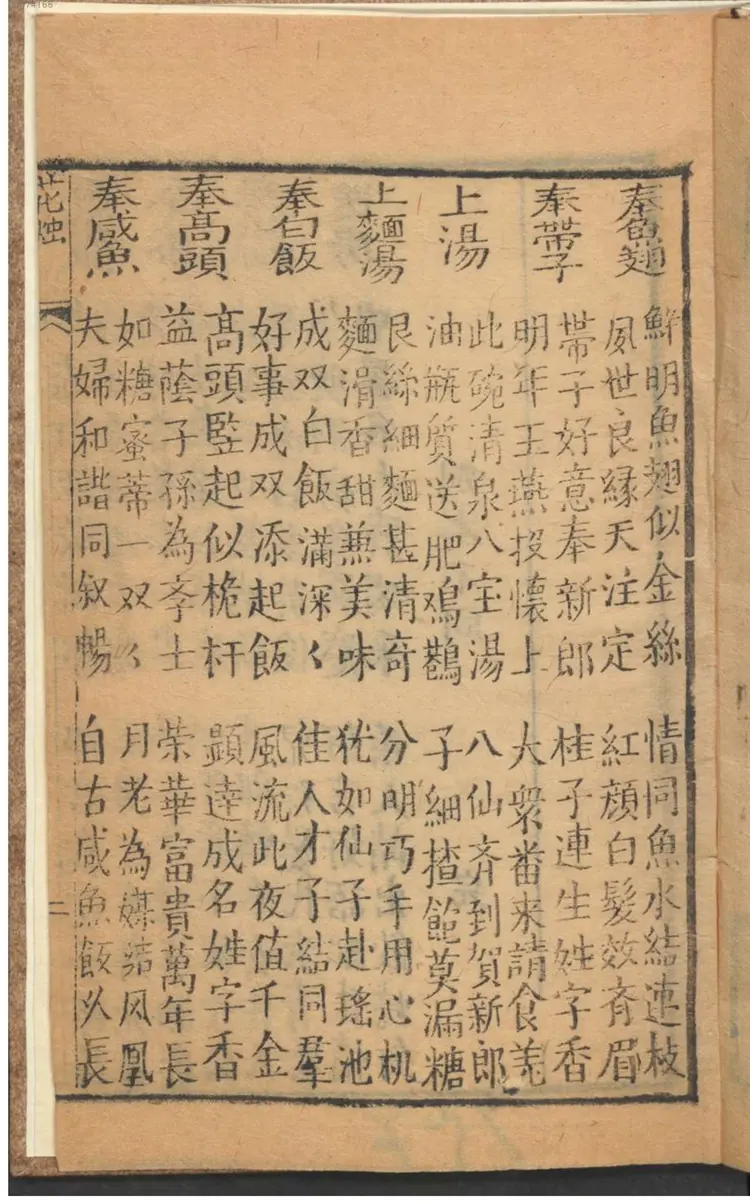 奉魚翅
鮮明魚翅似金絲 情同魚水結連枝
夙世良緣天注定 紅顏白髮效齊眉
奉帶子
帶子好意奉新郎 桂子連生姓字香
明年玉燕投懷上 大衆畨来請食羌
上湯
此碗清泉八宝湯 八仙斉到賀新郎
油瓶質送肥鳮鵲 子細揸飽莫漏糖
上麵湯
艮絲細麵甚清奇 分明巧手用心机
麵滑香甜兼美味 犹如仙子赴瑤池
奉白飯
成双白飯滿深〻 佳人才子結同羣
好事成双添起飯 風流此夜值千金
奉髙頭
髙頭竪起似桅杆 顕達成名姓字香
益蔭子孫為孝士 荣華富貴萬年長
奉咸魚
如糖蜜蒂一双〻 月老為媒結凤凰
夫婦和諧同叙暢 自古咸魚飯乆長
花烛
二
74168